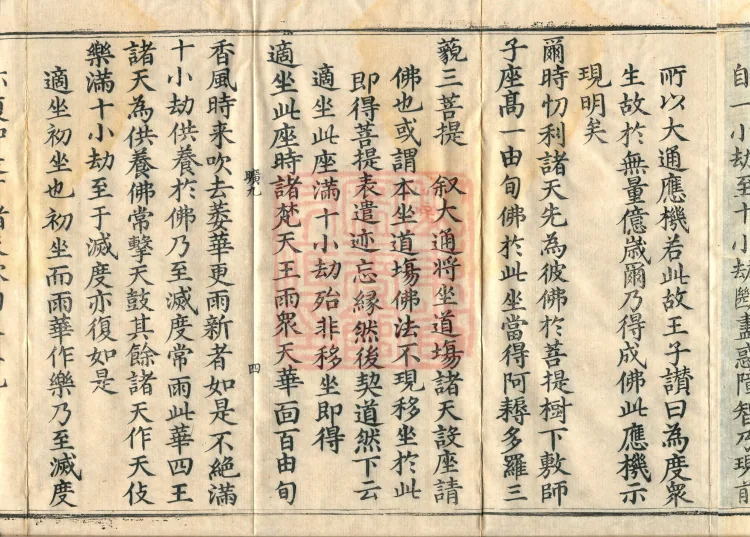 自一小劫至十小劫幾盡惑障智乃現前
所以大通應機若此故王子讃曰為度衆
生故於無量億歳爾乃得成佛此應機示
現明矣
爾時忉利諸天先為彼佛於菩提樹下敷師
子座髙一由旬佛於此坐當得阿耨多羅三
藐三菩提 叙大通将坐道塲諸天設座請
佛也或謂本坐道塲佛法不現移坐於此
即得菩提表遣迹忘縁然後契道然下云
適坐此座滿十小劫殆非移坐即得
適坐此座時諸梵天王雨衆天華面百由旬
曠九
四
香風時来吹去萎華更雨新者如是不絶滿
十小劫供養於佛乃至滅度常雨此華四王
諸天為供養佛常擊天鼓其餘諸天作天伎
樂滿十小劫至于滅度亦復如是
適坐初坐也初坐而雨華作樂乃至滅度